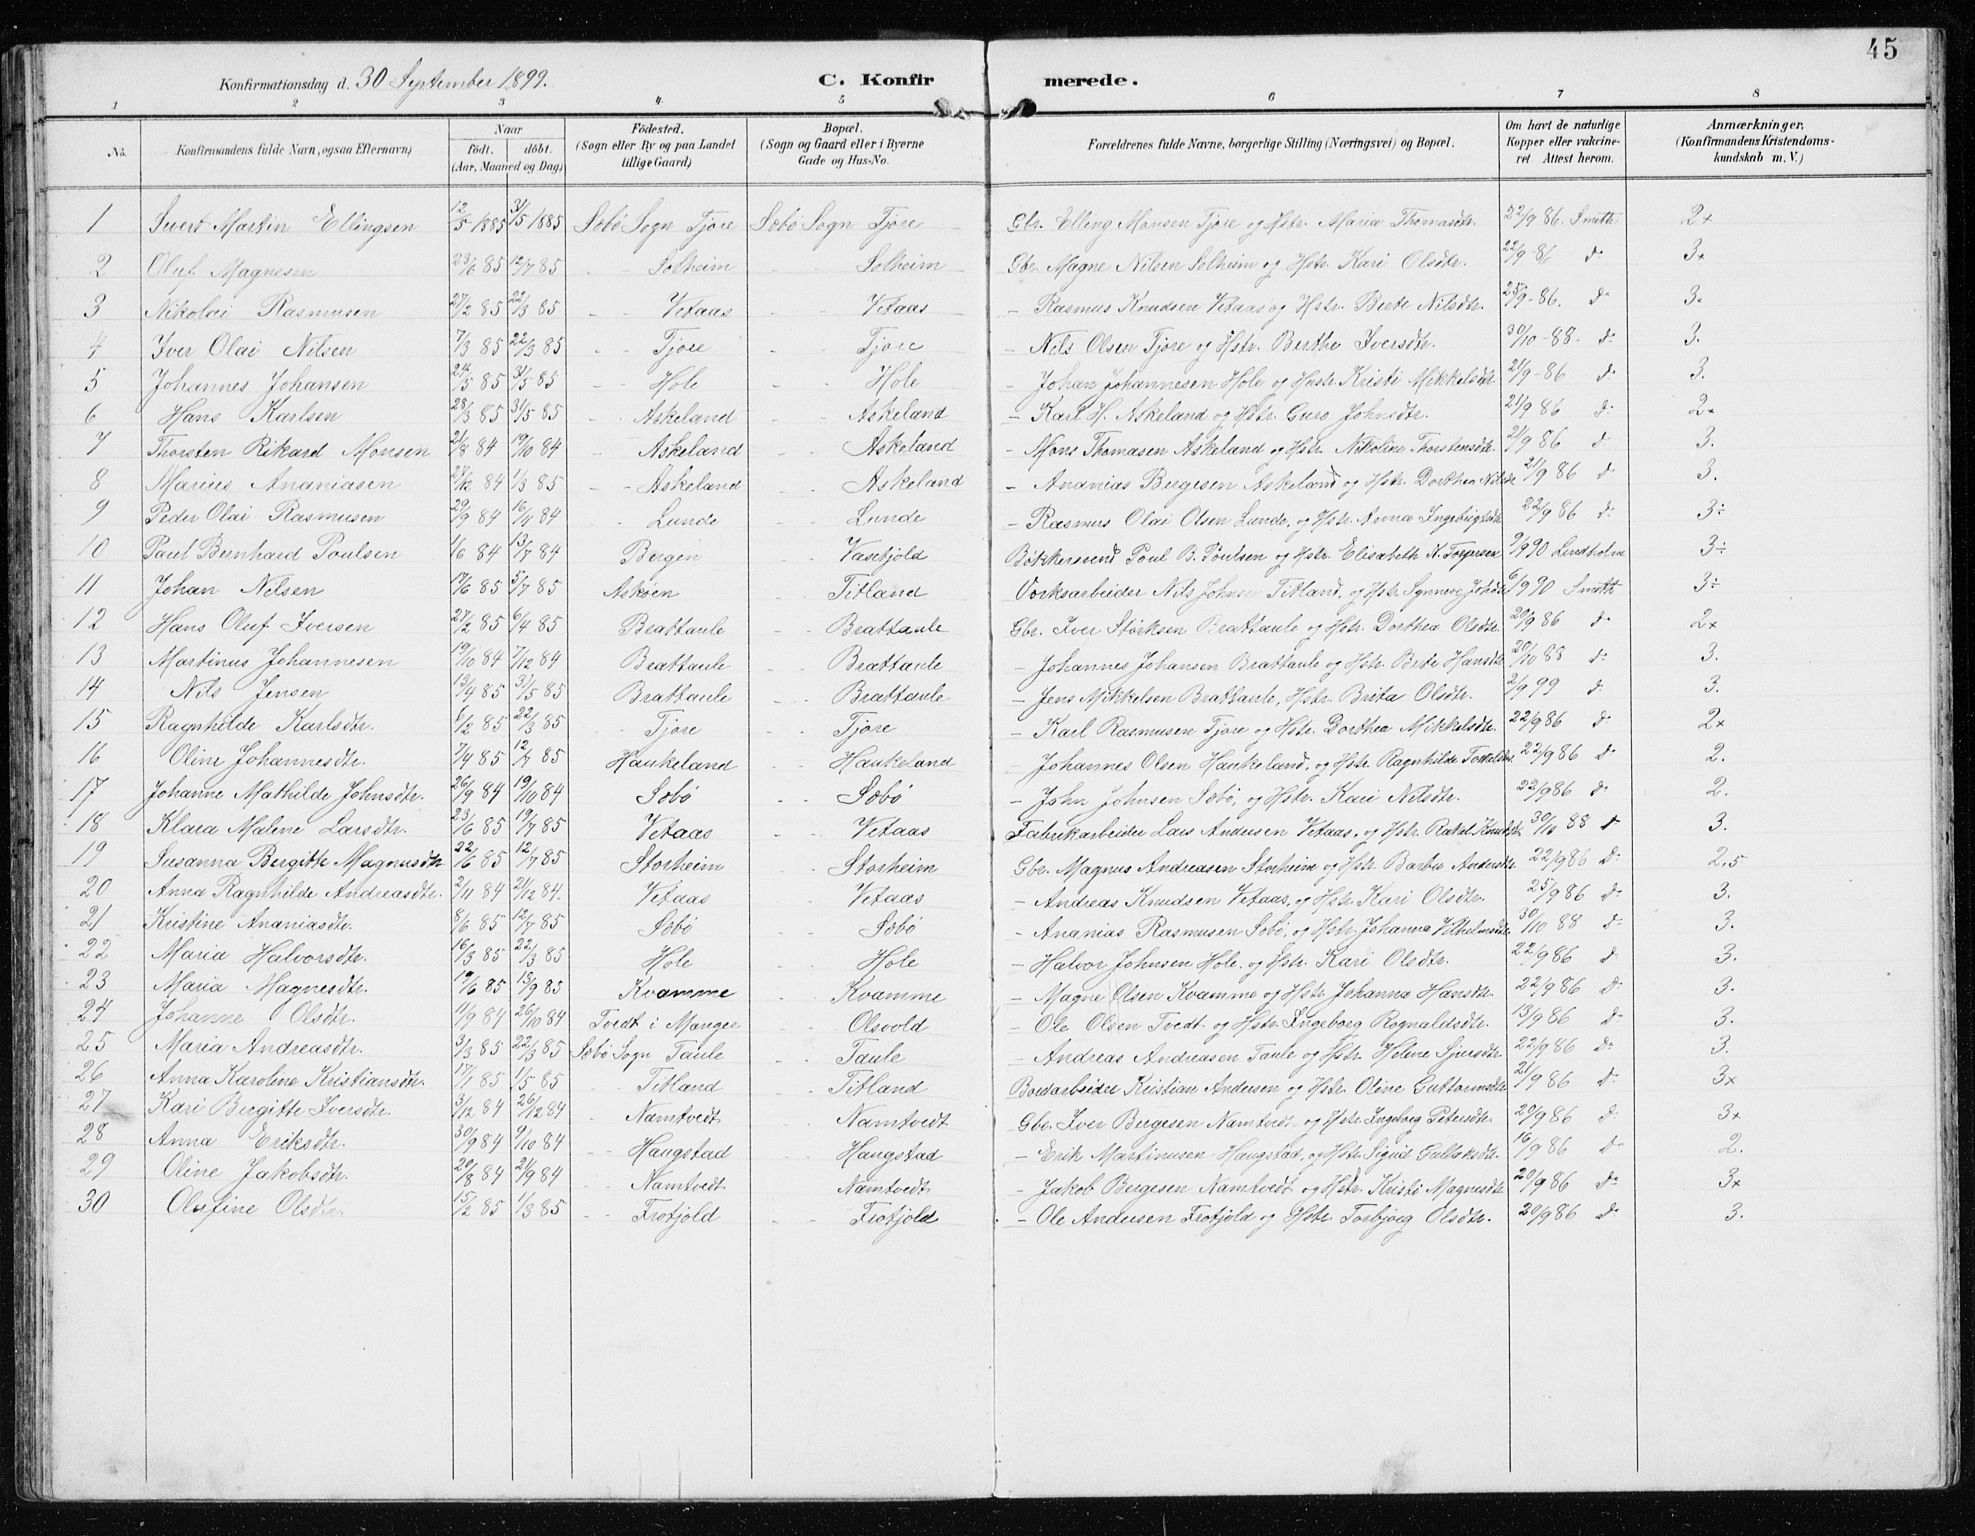 45
Konfirmationsdag d. 30 September 1899. C. Konfirmerede.
1 2 3 4 5 6 7 8
No. Konfirmandens fulde Navn, ogsaa Efternavn) Naar födt. döbt. (Aar, Maaned og Dag) Födested. (Sogn eller By og paa Landet tillige Gaard) Bopæl. (Sogn og Gaard eller i Byerne Gade og Hus-No. Forældrenes fulde Navne, borgerlige Stilling (Næringsvei) og Bopæl. Om havt de naturlige Kopper eller vakcineret Attest herom. Anmærkninger. (Konfirmandens Kristendomskundskab m. V.)
1 Sivert Martin Ellingsen 12/5 1885 31/5 1885 Sæbö Sogn Tjore Sæbö Sogn Tjore Gbr. Elling Monsen Tjore og Hstr. Maria Thomasdtr. 22/9 86. Smith 2+
2 Oluf Magnesen 23/6 85 12/7 85 - - Solheim - - Solheim Gbr. Magne Nilsen Solheim og Hstr. Kari Olsdtr. 22/9-86 do 3+
3 Nikolai Rasmusen 27/2 85 22/3 85 - - Vetaas - - Vetaas - Rasmus Knudsen Vetaas og Hstr. Berte Nilsdtr. 25/9-86. do 3.
4 Iver Olai Nilsen 7/3 85 22/3 85 - - Tjore - - Tjore - Nils Olsen Tjore og Hstr. Berthe Iversdtr. 30/10-88. do 3.
5 Johannes Johansen 24/5 85 31/5 85 - - Hole - - Hole - Johan Johannesen Hole og Hstr. Kristi Mikkelsdtr. 21/9-86 do 3.
6 Hans Karlsen 28/3 85 31/5 85 - - Askeland - - Askeland - Karl H. Askeland og Hstr. Guro Johnsdtr. 21/9 86 do 2+
7 Thorsten Rikard Monsen 21/8 84 19/10 84 - - Askeland - - Askeland - Mons Thomasen Askeland og Hstr. Nikoline Thorstensdtr. 21/9 86 do 3.
8 Marius Ananiasen 27/12 84 1/3 85 - - Askeland - - Askeland - Ananias Bergesen Askeland og Hstr. Dorthea Nilsdtr 21/9 86 do 3.
9 Peder Olai Rasmusen 29/9 84 16/11 84 - - Lunde - - Lunde - Rasmus Olai Olsen Lunde, og Hstr. Anna Ingebrigtsdtr 22/9 86 do 3÷
10 Paul Bernhard Poulsen 1/6 84 13/7 84 Bergen - - Vasetjold Bökkersvend Poul B. Poulsen og Hstr. Elisabeth N. Torgersen 9/9 90 Lindholm 3÷
11 Johan Nilsen 17/6 85 5/7 85 Asköen - - Titland Vorksarbeider Nils Johnsen Titland, og Hstr. Synneve Johsdtr 6/9 90 Smith 3÷
12 Hans Oluf Iversen 27/2 85 6/4 85 Brattaule - - Brattaule Gbr. Iver Störksen Brattaule og Hstr. Dorthea Olsdtr. 20/9 86 do 2+
13 Martinus Johannesen 19/10 84 7/12 84 Brattaule - - Brattaule - Johannes Johansen Brattaule og Hstr. Brite Hansdtr 20/10 88 do 3.
14 Nils Jensen 13/4 85 31/5 85 Brattaule - - Brattaule - Jens Mikkelsen Brattaule, Hstr. Brita Olsdtr. 2/9 99 do 3.
15 Ragnhilde Karlsdtr. 6/2 85 22/3 85 - - Tjore - - Tjore - Karl Rasmusen Tjore og Hstr. Dorthea Mikkelsdtr. 22/9 86 do 2+
16 Oline Johannesdtr. 7/4 85 12/7 85 Haukeland - - Haukeland - Johannes Olsen Haukeland, og Hstr. Ragnhilde Torkelsdtr. 22/9 86 do 2.
17 Johanne Mathilde Johnsdtr. 26/9 84 19/10 84 Sæbö - - Sæbö - John Johnsen Sæbö, og Hstr. Kari Nilsdtr. 22/9 86 do 2.
18 Klara Malene Larsdtr. 23/6 85 19/7 85 Vetaas - - Vetaas Fabrikarbeider Lars Andersen Vetaas, og Hstr. Rakel Knudsdtr. 30/10 88 do 3.
19 Susanna Bergitte Magnusdtr 22/6 85 12/7 85 Storheim - - Storheim Gbr. Magnus Andreasen Storheim og Hstr. Barbra Andersdtr. 22/9 86 do 2,5
20 Anna Ragnhilde Andreasdtr. 2/11 84 21/12 84. Vetaas - - Vetaas - Andreas Knudsen Vetaas, og Hstr. Kari Olsdtr. 25/9 86 do 3.
21 Kristine Ananiasdtr. 8/6 85 12/7 85 Sæbö - - Sæbö - Ananias Rasmusen Sæbö, og Hstr. Johanna Vilhelmsdtr 30/10 88 do 3.
22 Maria Halvorsdtr. 16/3 85 22/3 85 Hole - - Hole - Halvor Johnsen Hole. og Hstr. Kari Olsdtr. 22/9 86 do 3.
23 Maria Magnesdtr. 19/6 85 13/9 85 Kvamme - - Kvamme - Magne Olsen Kvamme og Hstr. Johanna Hansdtr. 22/9 86 do 3.
24 Johanne Olsdtr. 11/9 84 26/10 84 Tvedt i Manger - - Olsvold - Ole Olsen Tvedt og Hstr. Ingeborg Rognaldsdtr. 13/9 86 do 3.
25 Maria Andreasdtr. 3/3 85 22/3 85 Sæbö Sogn Taule - - Taule - Andreas Andreasen Taule og Hstr. Helene Sjursdtr. 22/9 86 do 3.
26 Anna Karoline Kristiansdtr. 17/1 85 1/5 85 - - Titland - - Titland Bordarbeider Kristian Andersen og Hstr. Oline Guttormsdtr 21/9 86 do 3+
27 Kari Bergitte Iversdtr. 3/12 84 26/12 84 - - Namtvedt - - Namtvedt Gbr. Iver Bergesen Namtvedt og Hstr. Ingeborg Petersdtr. 20/9 86 do 3+
28 Anna Eriksdtr. 30/9 84 9/10 84 - - Haugstad - - Haugstad - Erik Martinusen Haugstad, og Hstr. Sigrid Gulliksdtr. 16/9 86 do 2.
29 Oline Jakobsdtr. 20/8 84 21/9 84 - - Namtvedt - - Namtvedt - Jakob Bergesen Namtvedt og Hstr. Kristi Magnesdtr 20/9 86 do 3+
30 Olefine Olsdtr. 15/2 85 1/3 85 - - Frotjold - - Frotjold - Ole Andersen Frotjold og Hstr. Torbjorg Olsdtr. 20/9 86 do 3.